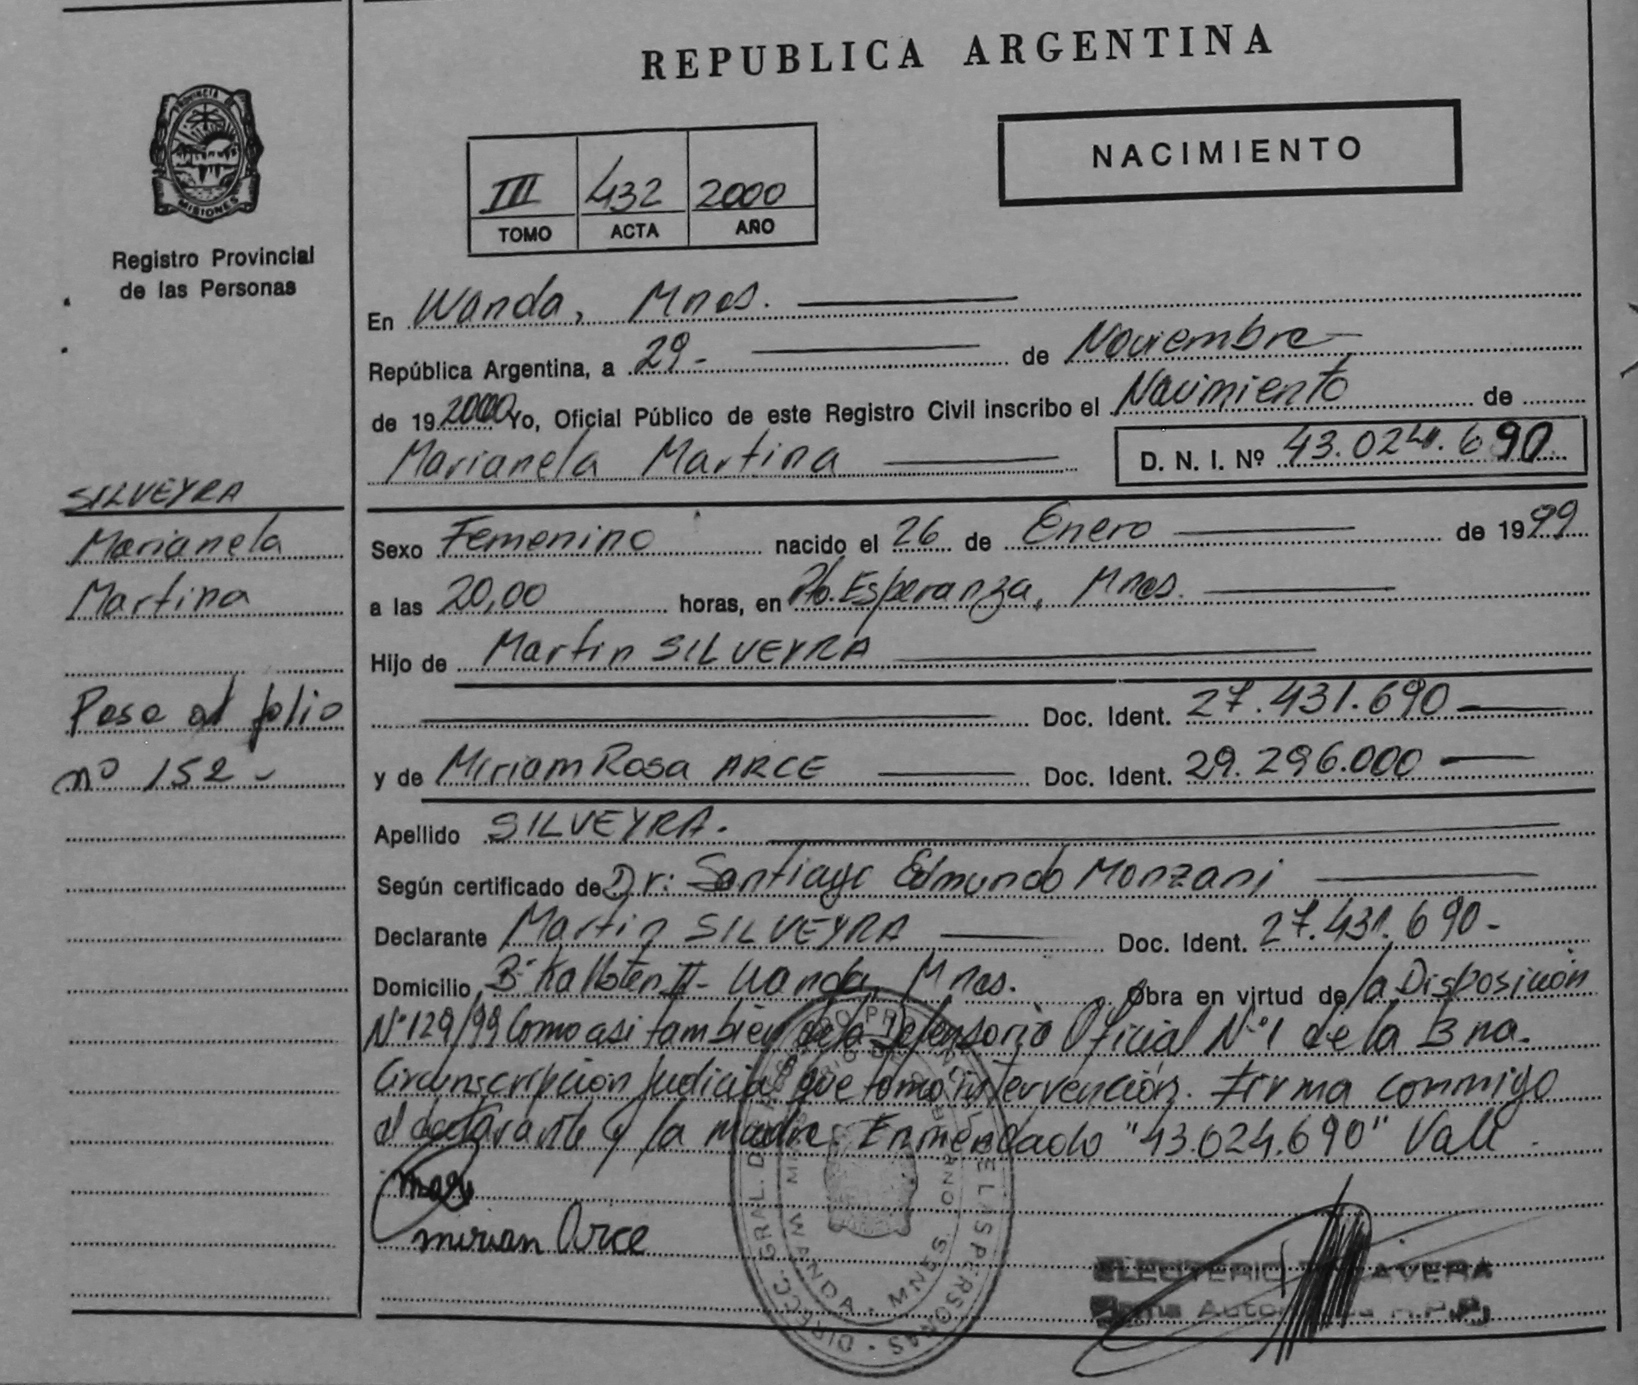 REPUBLICA ARGENTINA
PROVINCIA DE
MISIONES
Registro Provincial
de las Personas
NACIMIENTO
III 432 2000
TOMO ACTA AÑO
En Wanda, Mnes.
República Argentina, a 29- de Noviembre
de 19 2000 Yo, Oficial Público de este Registro Civil inscribo el Nacimiento de
Marianela Martina D. N. I. Nº 43.024.690
SILVEYRA
Marianela
Martina
Pose al folio
nº 152-
Sexo Femenino nacido el 26 de Enero de 1999
a las 20,00 horas, en Pto. Esperanza, Mnes.
Hijo de Martin SILVEYRA
Doc. Ident. 27.431.690
y de Miriam Rosa ARCE Doc. Ident. 29.296.000
Apellido SILVEYRA.
Según certificado de Dr: Santiago Edmundo Monzani
Declarante Martin SILVEYRA Doc. Ident. 27.431.690-
Domicilio Bº II- Wanda, Mnes. Obra en virtud de la Disposición
Nº 129/99 Como asi también de la Defensoria Oficial Nº1 de la 3 na.
Circunscripción Judicial que tomo intervención. Firma conmigo
el declarante y la madre. Enmendado "43.024.690" Vale.
mirian Arce
DIRECC. GRAL. DE LAS PERSONAS
WANDA - MNES.